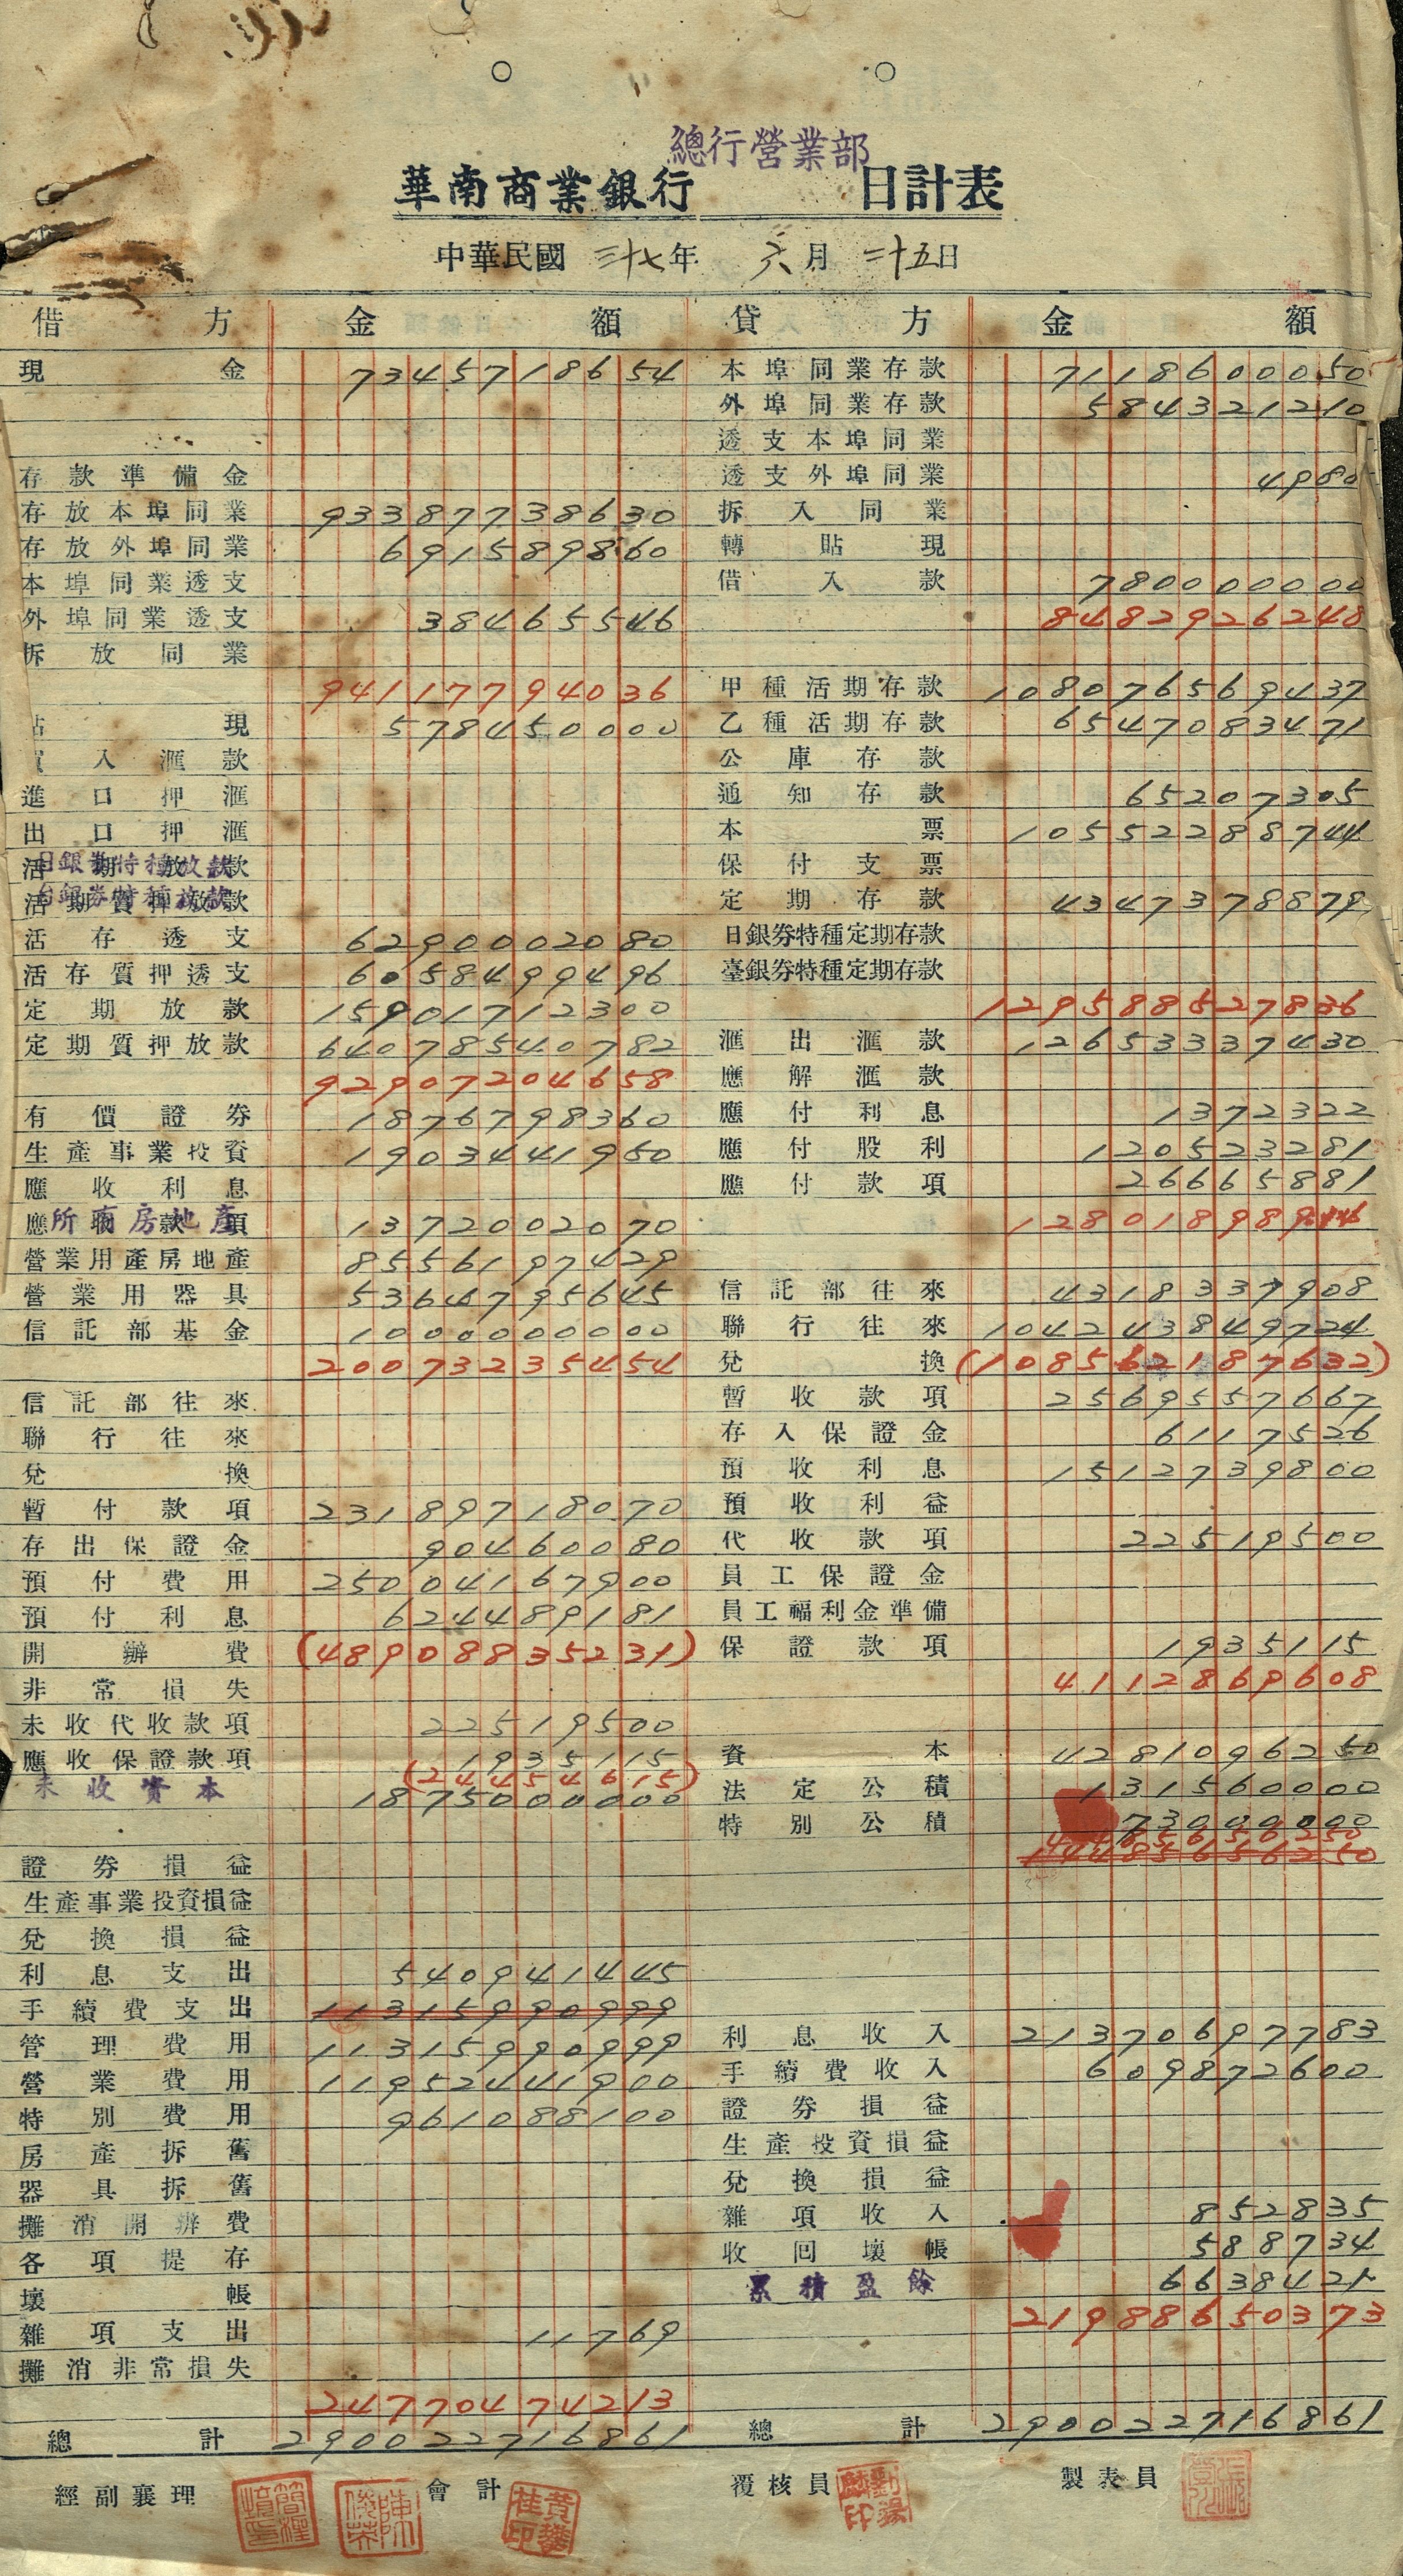 總行營業部
華南商業銀行 日計表
中華民國 三十七年 六月 二十五日
借方 金額 貸方 金額
現金 7345718654 本埠同業存款 71186000050
外埠同業存款 584321210
透支本埠同業
存款準備金 透支外埠同業 4980
存放本埠同業 93387738630 拆入同業
存放外埠同業 691589860 轉貼現
本埠同業透支 借入款 7800000000
外埠同業透支 38465546 84829926248
拆放同業
94117794036 甲種活期存款 108076569437
現 5784500000 乙種活期存款 6547083471
入滙款 公庫存款
進口押滙 通知存款 65207305
出口押滙 本票 10552288744
活期放款 日銀券特種放款 保付支票
活期質押放款 台銀券特種放款 定期存款 4347378879
活存透支 62900002080 日銀券特種定期存款
活存質押透支 6058499496 臺銀券特種定期存款
定期放款 15901712300 1295888527836
定期質押放款 640785540782 滙出滙款 126533337430
929072204658 應解滙款
有價證券 1876798360 應付利息 1372322
生產事業投資 19034441950 應付股利 120523281
應收利息 應付款項 26665881
應收款項 所有房地產 13720002070 128018989
營業用產房地產 8556197429
營業用器具 53646795645 信託部往來 4318337908
信託部基金 1000000000 聯行往來 1042438849724
200732235454 兌換 (108562187632)
信託部往來 暫收款項 25695557667
聯行往來 存入保證金 6117526
兌換 預收利息 1512739800
暫付款項 231897718070 預收利益
存出保證金 90460080 代收款項 22519500
預付費用 25004167900 員工保證金
預付利息 624489181 員工福利金準備
開辦費 (489088835231) 保證款項 1935115
非常損失 4112869608
未收代收款項 22519500
應收保證款項 1935115 資本 4281096250
(24454615)
未收資本 1875000000 法定公積 131560000
特別公積 73000000
證券損益
生產事業投資損益
兌換損益
利息支出 540941445
手續費支出 113159909999
管理費用 113159909999 利息收入 213706977783
營業費用 119524441900 手續費收入 609872600
特別費用 961088100 證券損益
房產拆舊 生產投資損益
器具拆舊 兌換損益
攤消開辦費 雜項收入 852835
各項提存 收回壞帳 588734
壞帳 累積盈餘
雜項支出 11769 219886650373
攤消非常損失
247704774213
總計 2900227716861 總計 2900227716861
經副襄理 會計 覆核員 製表員